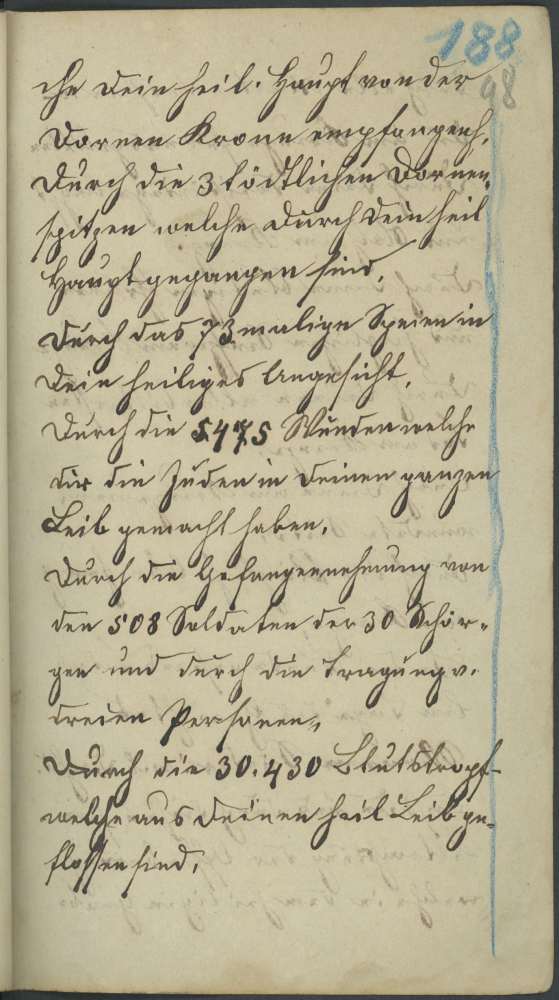 188
98
che dein heil. Haupt von der
Dornen Krone empfangen h,
durch die 3 tödtlichen Dornen,
spitzen welche durch dein heil
Haupt gegangen sind,
durch das 73 malige Speien in
dein heiliges Angesicht,
durch die 5475 Wunden welche
dir die Juden in deinen ganzen
Leib gemacht haben,
durch die Gefangennehmung von
den 508 Soldaten der 30 Schör-
gen und durch die Tragung v.
dreien Personen,,
Durch die 30.430 Blutstropf-
welche aus deinen heil Leib ge-
flossen sind,